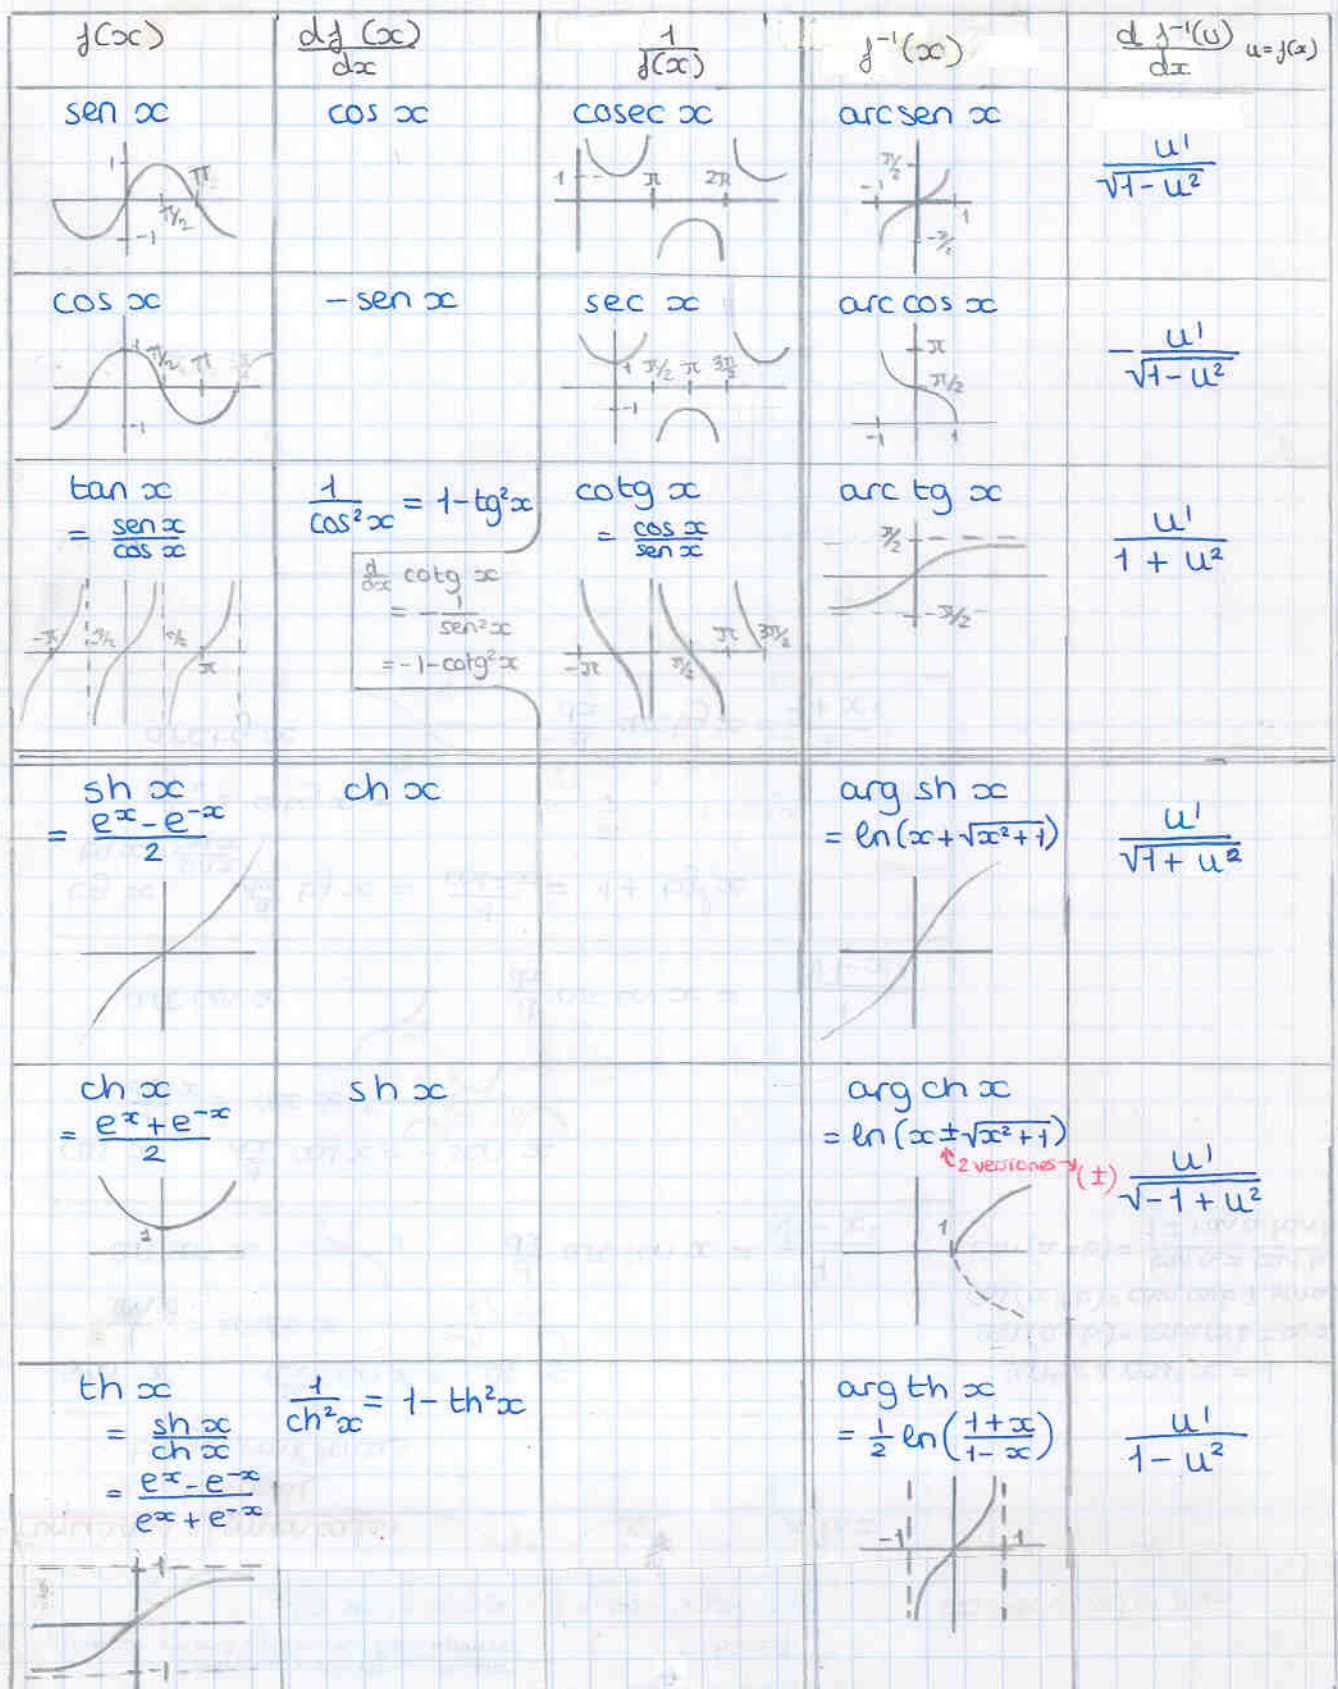 f(x)
df(x)/dx
1/f(x)
f⁻¹(x)
d f⁻¹(u)/dx u=f(x)
sen x
1
π
π/2
-1
cos x
cosec x
1
π
2π
arcsen x
π/2
-1
1
-π/2
u'/√1-u²
cos x
1
π/2
π
-1
-sen x
sec x
1
π/2
π
3π/2
-1
arc cos x
π
π/2
-1
1
-u'/√1-u²
tan x
= sen x/cos x
-π
π/2
π/2
π
1/cos²x = 1-tg²x
d/dx cotg x
= -1/sen²x
= -1-cotg²x
cotg x
= cos x/sen x
-π
π/2
π
3π/2
arc tg x
π/2
-π/2
u'/1+u²
sh x
= eˣ-e⁻ˣ/2
ch x
arg sh x
= ln(x+√x²+1)
u'/√1+u²
ch x
= eˣ+e⁻ˣ/2
1
sh x
arg ch x
= ln(x±√x²+1)
2 versiones → (±)
1
u'/√-1+u²
th x
= sh x/ch x
= eˣ-e⁻ˣ/eˣ+e⁻ˣ
1
-1
1/ch²x = 1-th²x
arg th x
= 1/2 ln(1+x/1-x)
-1
1
u'/1-u²